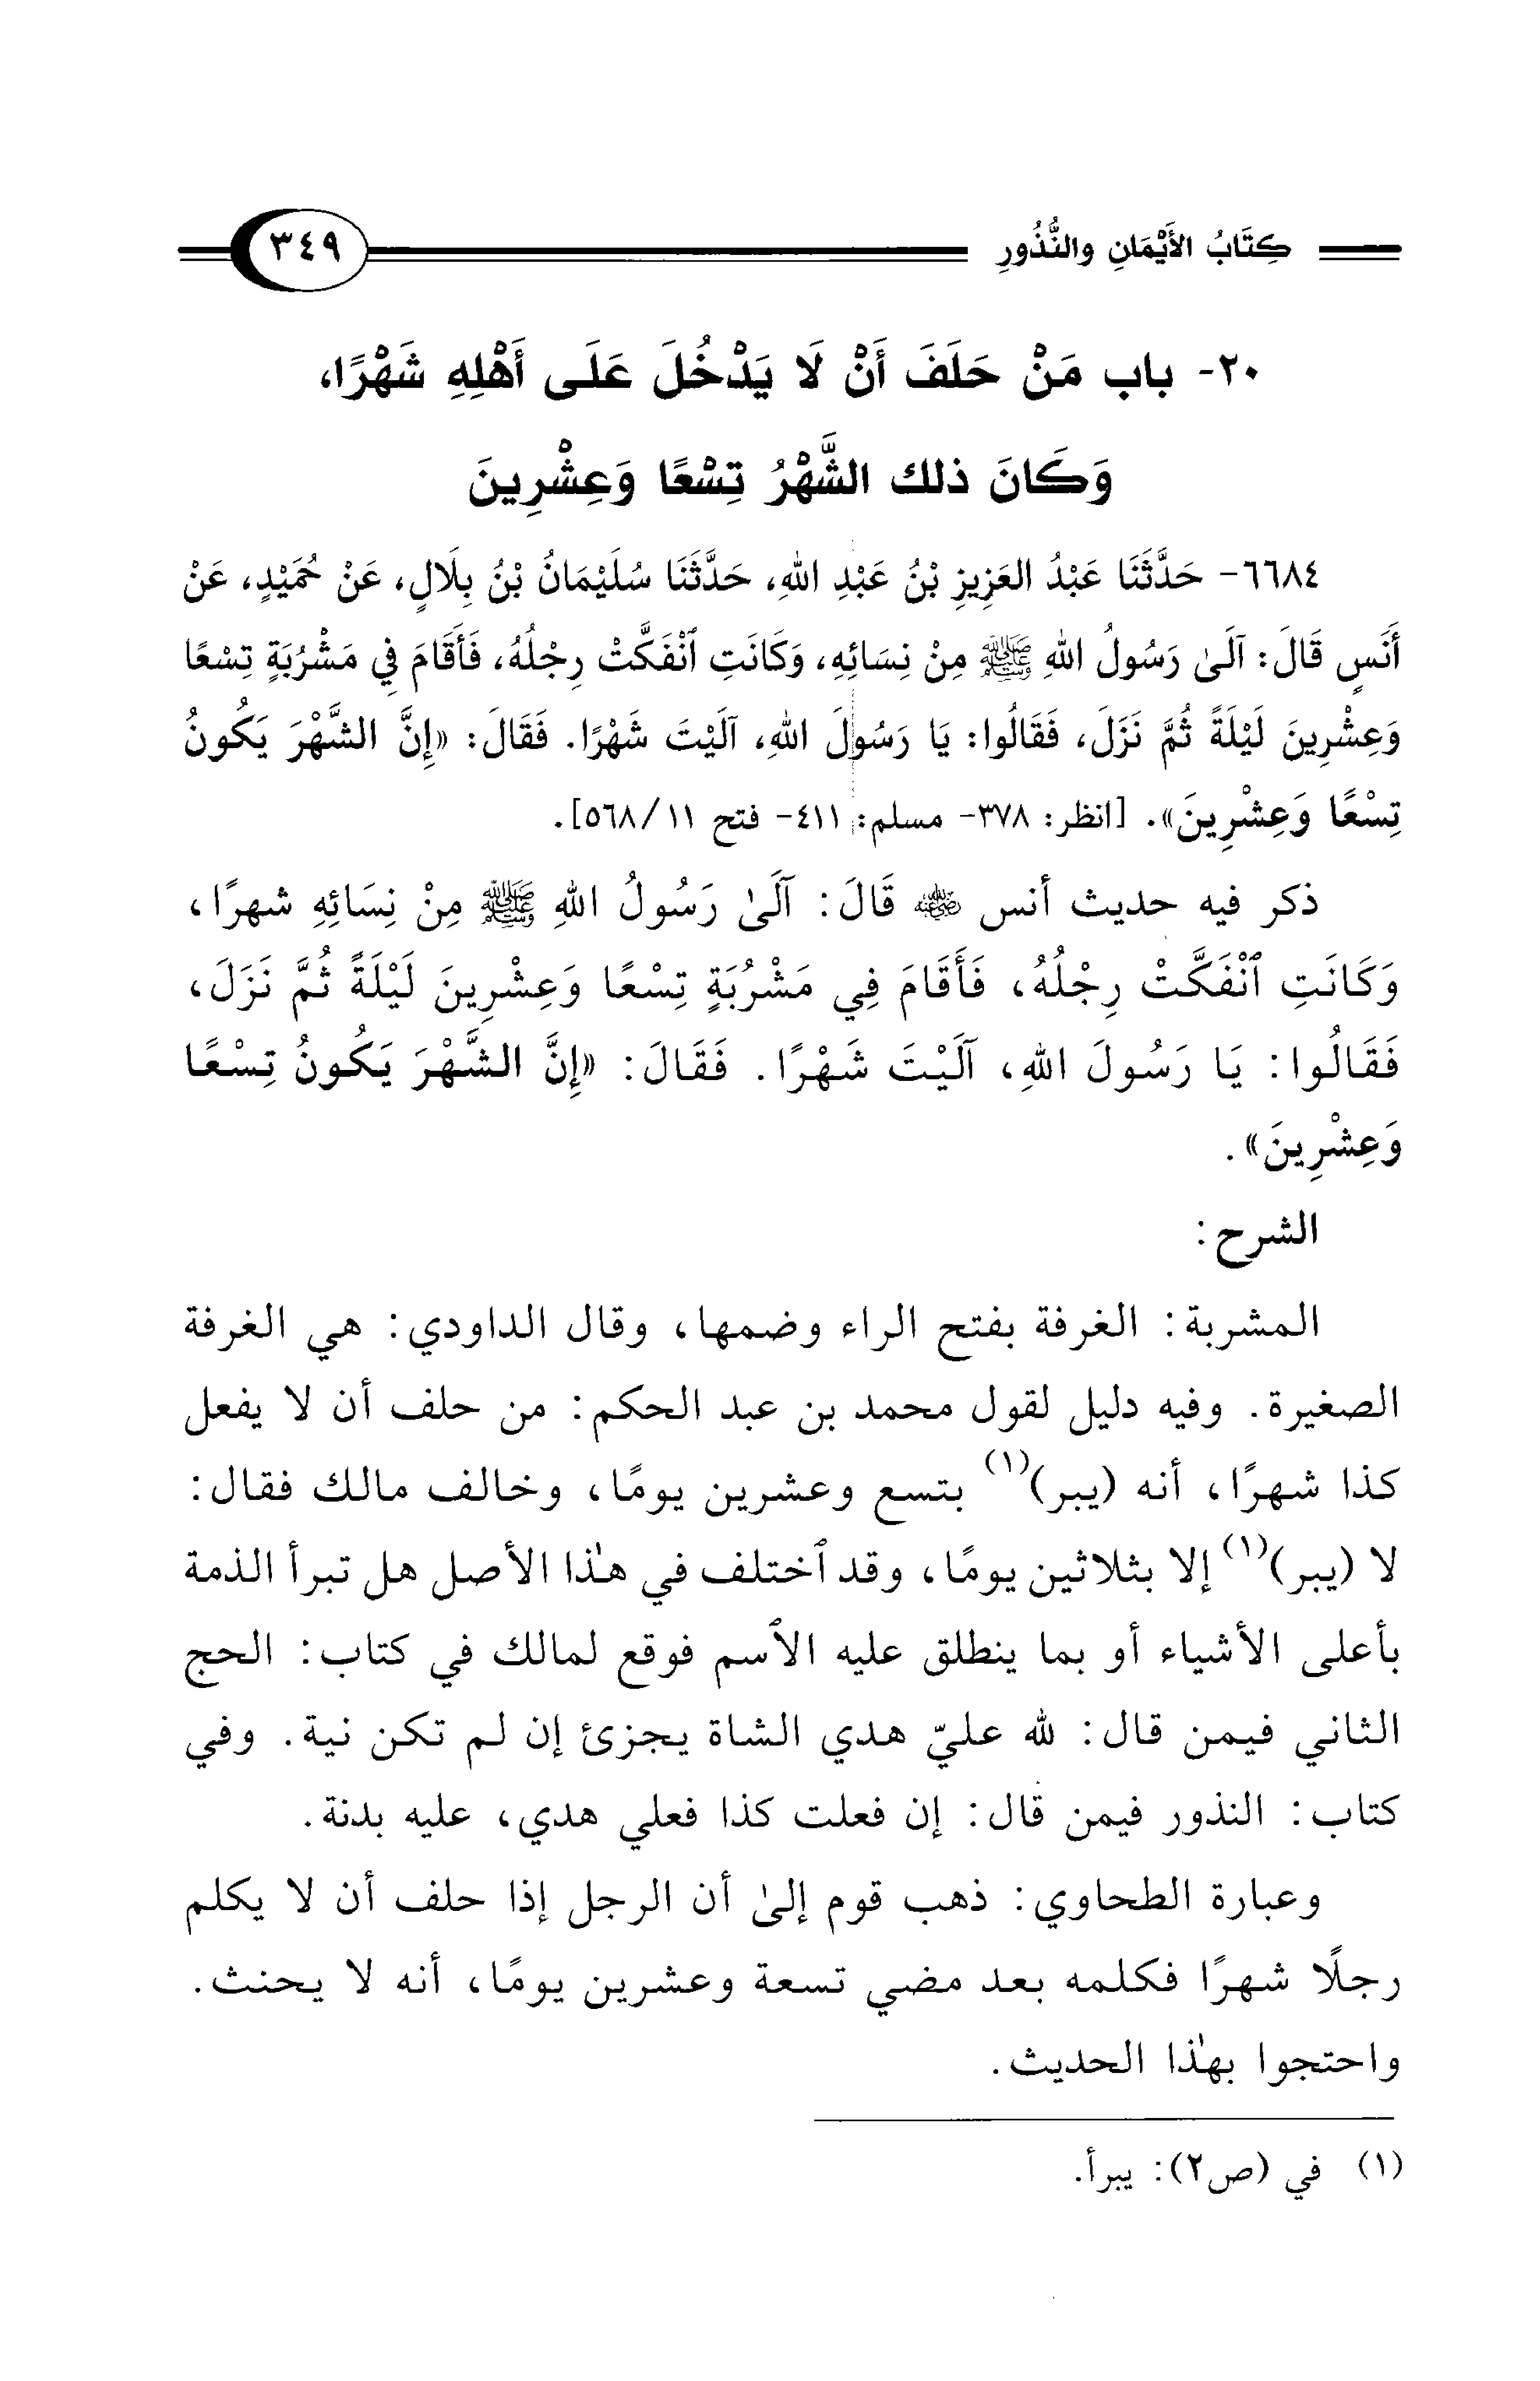 كِتَابُ الأَيْمَانِ والنُّذُورِ ٣٤٩
٢٠- باب مَنْ حَلَفَ أَنْ لَا يَدْخُلَ عَلَى أَهْلِهِ شَهْرًا،
وَكَانَ ذلك الشَّهْرُ تِسْعًا وَعِشْرِينَ
٦٦٨٤- حَدَّثَنَا عَبْدُ العَزِيزِ بْنُ عَبْدِ اللهِ، حَدَّثَنَا سُلَيْمَانُ بْنُ بِلَالٍ، عَنْ حُمَيْدٍ، عَنْ
أَنَسٍ قَالَ: آلَىٰ رَسُولُ اللهِ ﷺ مِنْ نِسَائِهِ، وَكَانَتِ ٱنْفَكَّتْ رِجْلُهُ، فَأَقَامَ فِي مَشْرُبَةٍ تِسْعًا
وَعِشْرِينَ لَيْلَةً ثُمَّ نَزَلَ، فَقَالُوا: يَا رَسُولَ اللهِ، آلَيْتَ شَهْرًا. فَقَالَ: «إِنَّ الشَّهْرَ يَكُونُ
تِسْعًا وَعِشْرِينَ». [انظر: ٣٧٨- مسلم: ٤١١- فتح ١١/ ٥٦٨].
ذكر فيه حديث أنس رضي الله عنه قَالَ: آلَىٰ رَسُولُ اللهِ ﷺ مِنْ نِسَائِهِ شهرًا،
وَكَانَتِ ٱنْفَكَّتْ رِجْلُهُ، فَأَقَامَ فِي مَشْرُبَةٍ تِسْعًا وَعِشْرِينَ لَيْلَةً ثُمَّ نَزَلَ،
فَقَالُوا: يَا رَسُولَ اللهِ، آلَيْتَ شَهْرًا. فَقَالَ: «إِنَّ الشَّهْرَ يَكُونُ تِسْعًا
وَعِشْرِينَ».
الشرح:
المشربة: الغرفة بفتح الراء وضمها، وقال الداودي: هي الغرفة
الصغيرة. وفيه دليل لقول محمد بن عبد الحكم: من حلف أن لا يفعل
كذا شهرًا، أنه (يبر)(١) بتسع وعشرين يومًا، وخالف مالك فقال:
لا (يبر)(١) إلا بثلاثين يومًا، وقد ٱختلف في هٰذا الأصل هل تبرأ الذمة
بأعلى الأشياء أو بما ينطلق عليه الاٞسم فوقع لمالك في كتاب: الحج
الثاني فيمن قال: لله عليّ هدي الشاة يجزئ إن لم تكن نية. وفي
كتاب: النذور فيمن قال: إن فعلت كذا فعلي هدي، عليه بدنة.
وعبارة الطحاوي: ذهب قوم إلىٰ أن الرجل إذا حلف أن لا يكلم
رجلًا شهرًا فكلمه بعد مضي تسعة وعشرين يومًا، أنه لا يحنث.
واحتجوا بهٰذا الحديث.
(١) في (ص٢): يبرأ.